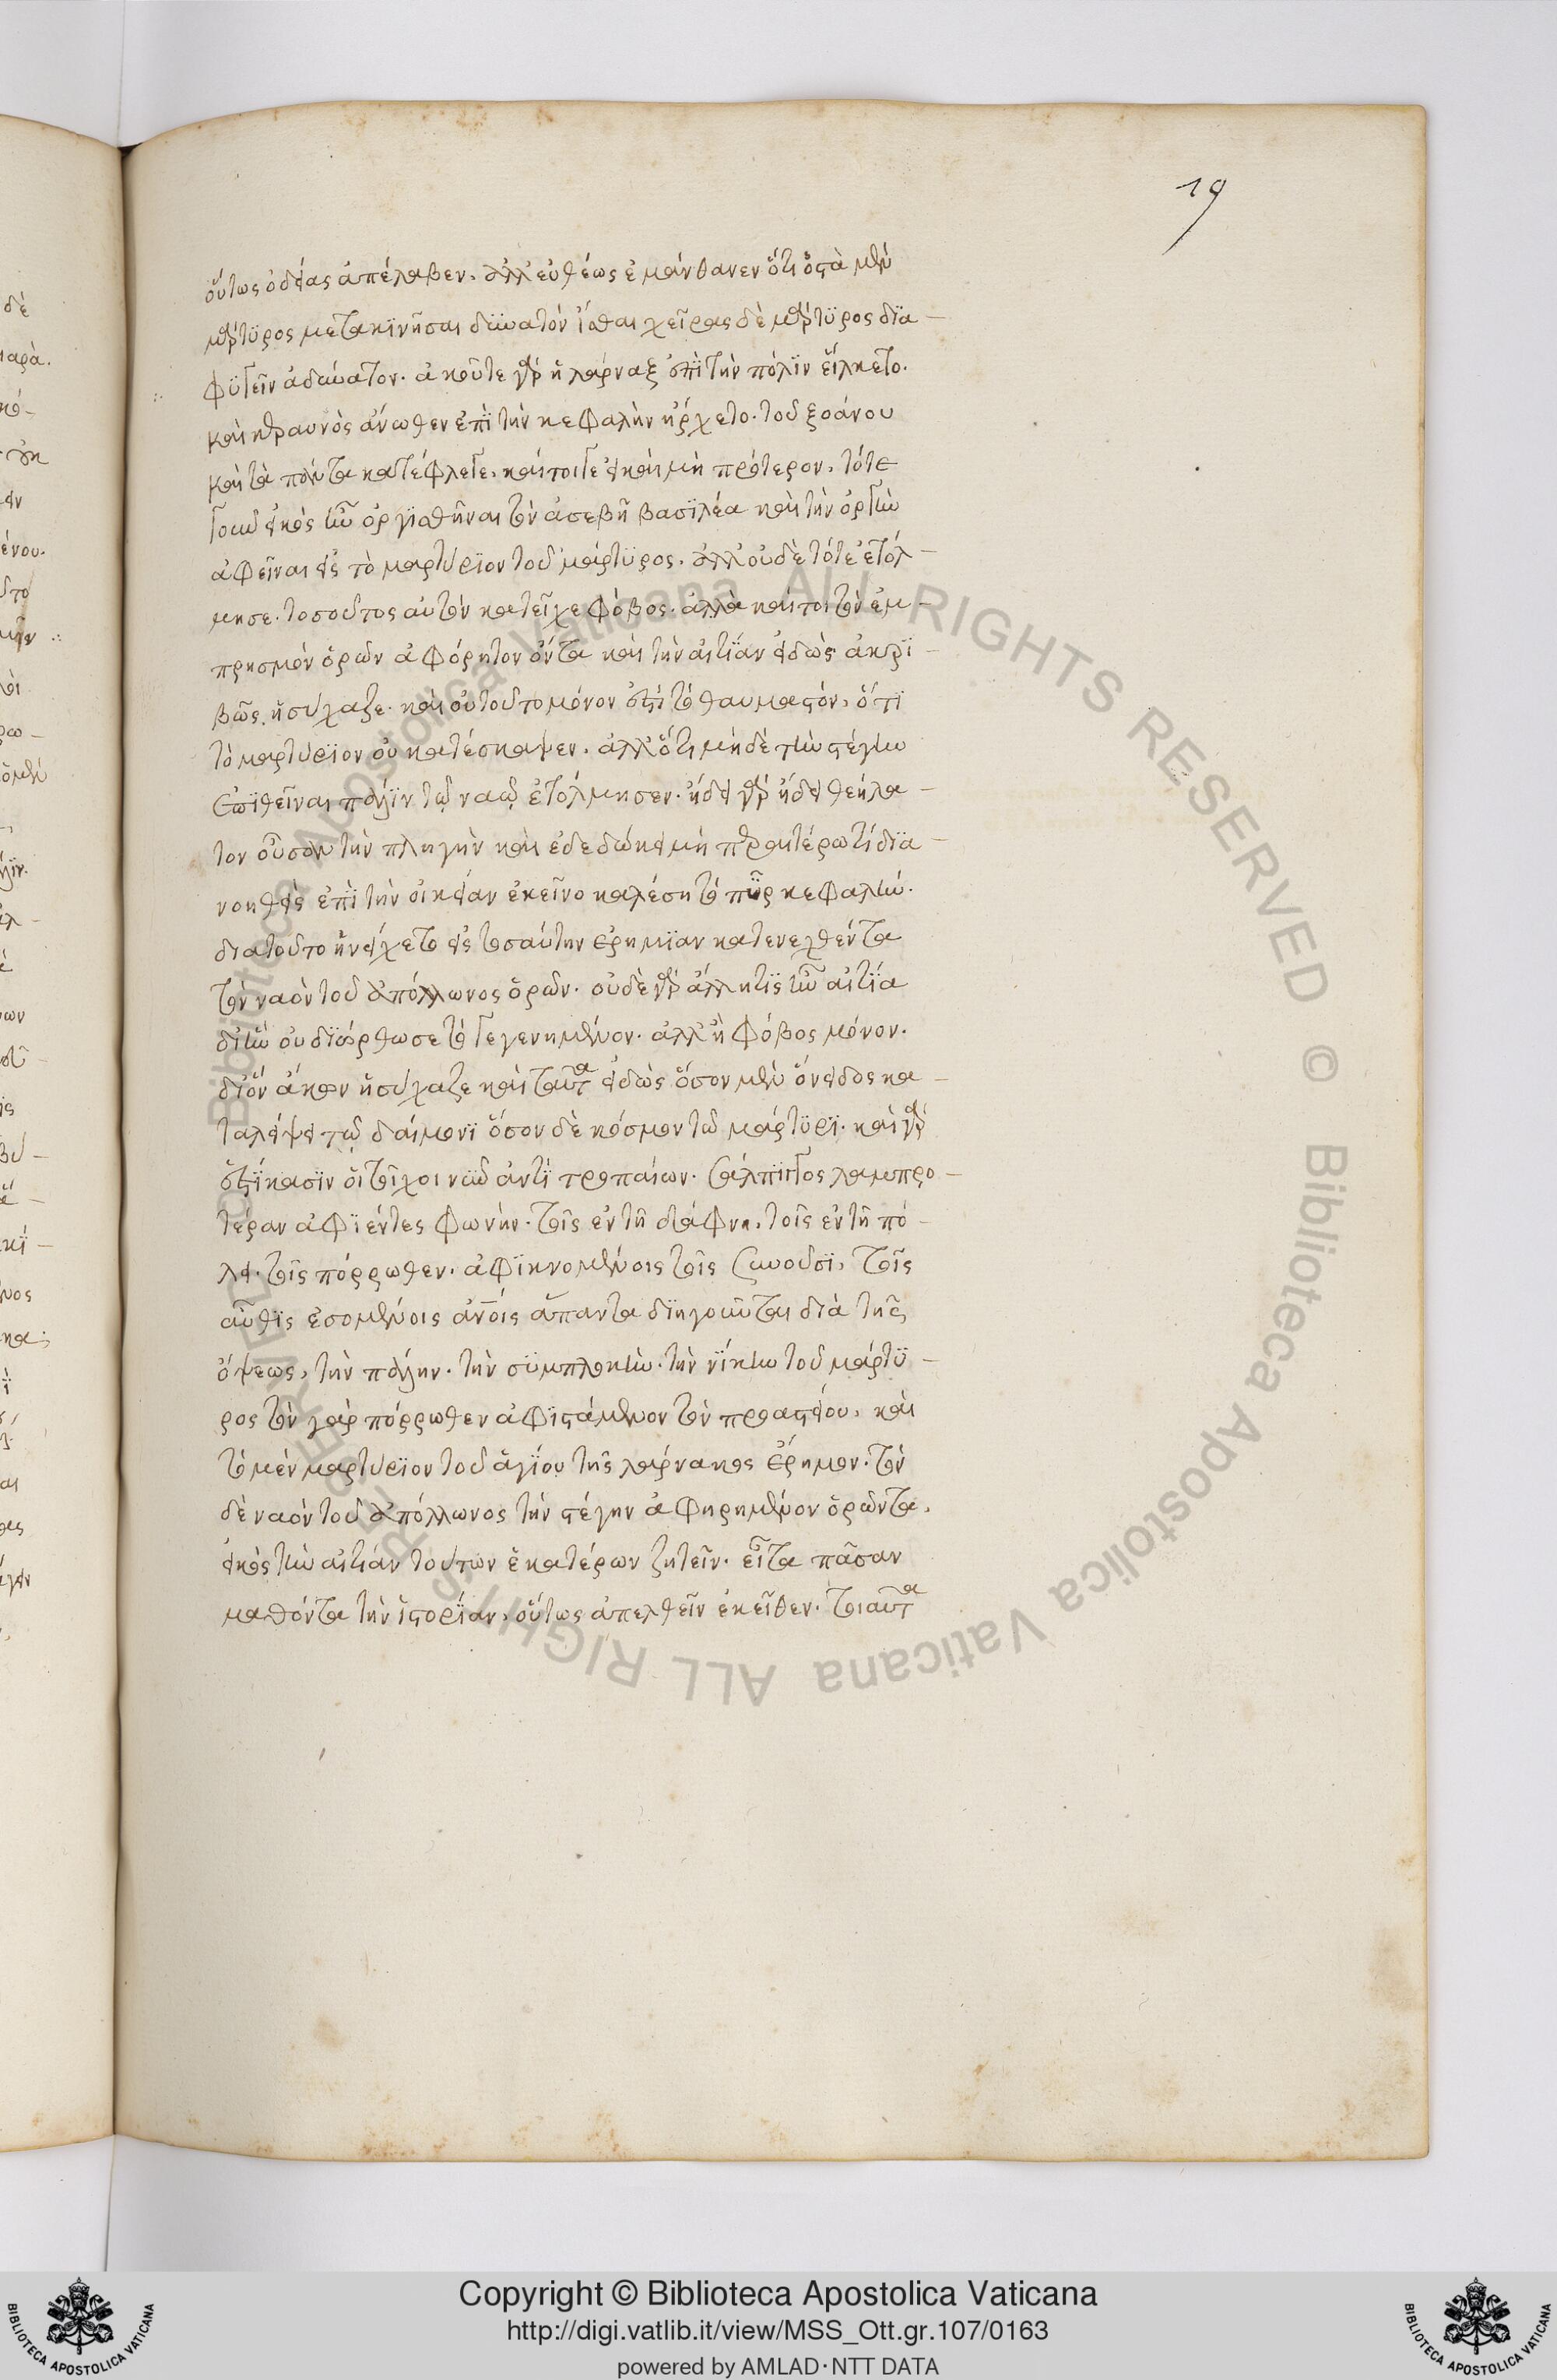 19
οὕτως ὀδείας ἀπέλαβεν. ἀλλ' εὐθέως ἐμάνθανεν ὅτι ὀστᾶ μὲν
μάρτϋρος μετακϊνῆσαι δϋνατὸν ἴσθαι χεῖρας δὲ μάρτϋρος δϊα-
φϋγεῖν ἀδύνατον. ἅμα οὖτε γὰρ ἡ λάρναξ ἐπὶ τὴν πόλϊν εἵλκετο.
καὶ κεραυνὸς ἄνωθεν ἐπὶ τὴν κεφαλὴν ἤρχετο. τοῦ ξοάνου
καὶ τὰ πάντα κατέφλεγε. καίτοιγε εἰ καὶ μὴ πρότερον. τότε
γοῦν εἰκὸς ἦν ὀργϊσθῆναι τὸν ἀσεβῆ βασϊλέα καὶ τὴν ὀργὴν
ἀφεῖναι εἰς τὸ μαρτύρϊον τοῦ μάρτϋρος. ἀλλ' οὐδὲ τότε ἐτόλ-
μησε. τοσοῦτος αὐτὸν κατεῖχε φόβος. ἀλλὰ καίτοι τὸν ἐμ-
πρησμὸν ὁρῶν ἀφόρητον ὄντα καὶ τὴν αἰτίαν εἰδὼς ἀκρϊ-
βῶς. ἡσύχαζε. καὶ οὐ τοῦτο μόνον ἐστὶ τὸ θαυμαστόν. ὅτϊ
τὸ μαρτύρϊον οὐ κατέσκαψεν. ἀλλ' ὅτι μὴ δὲ τὴν στέγην
ἐπϊθεῖναι πάλϊν τῷ ναῷ ἐτόλμησεν. ᾔδει γὰρ ᾔδει θεήλα-
τον οὖσαν τὴν πληγὴν καὶ ἐδεδοίκει μὴ περαιτέρω τί δϊα-
νοηθεὶς ἐπὶ τὴν οἰκείαν ἐκεῖνο καλέσῃ τὸ πῦρ κεφαλήν.
διατοῦτο ἠνείχετο εἰς τοσαύτην ἐρημϊαν κατενεχθέντα
τὸν ναὸν τοῦ ἀπόλλωνος ὁρῶν. οὐδὲ γὰρ ἄλλη τϊς ἦν αἰτία
δι' ἣν οὐ διώρθωσε τὸ γεγενημένον. ἀλλ' ἢ φόβος μόνον.
δι' ὃν ἄκων ἡσύχαζε καὶ ταῦτα εἰδὼς ὅσον μὲν ὄνειδος κα-
ταλείψει τῷ δαίμονϊ ὅσον δὲ κόσμον τῶ μάρτϋρϊ. καὶ γὰρ
ἑστήκασϊν οἱ τοῖχοι νῦν ἀντὶ τροπαίων. σάλπιγγος λαμπρο-
τέραν ἀφϊέντες φωνήν. τοῖς ἐν τῇ δάφνῃ. τοῖς ἐν τῇ πό-
λει. τοῖς πόρρωθεν. ἀφϊκνομένοις τοῖς συνοῦσϊ. τοῖς
αὖθϊς ἐσομένοις ἀνοις ἅπαντα δϊηγοῦνται διὰ τῆς
ὄψεως. τὴν πάλην. τὴν συμπλοκήν. τὴν νίκην τοῦ μάρτϋ-
ρος τὸν γὰρ πόρρωθεν ἀφϊστάμενον τὸν προαστείου. καὶ
τὸ μὲν μαρτύρϊον τοῦ ἁγϊου τῆς λάρνακος ἔρημον. τὸν
δὲ ναὸν τοῦ ἀπόλλωνος τὴν στέγην ἀφηρημένον ὁρῶντα.
εἰκὸς τὴν αἰτιάν τούτων ἑκατέρων ζητεῖν. εἶτα πᾶσαν
μαθόντα τὴν ἱστορϊαν. οὕτως ἀπελθεῖν ἐκεῖθεν. τοιαῦτα
Copyright © Biblioteca Apostolica Vaticana
http://digi.vatlib.it/view/MSS_Ott.gr.107/0163
powered by AMLAD·NTT DATA